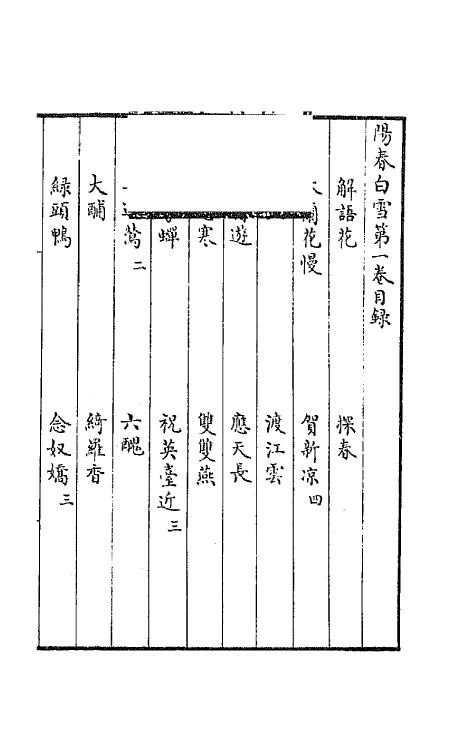 陽春白雪第一卷目録
解語花 探春
蘭花慢 賀新凉四
渡江雲
遊 應天長
寒 雙雙燕
蟬 祝英臺近三
鶯二 六醜
大酺 綺羅香
緑頭鴨 念奴嬌三